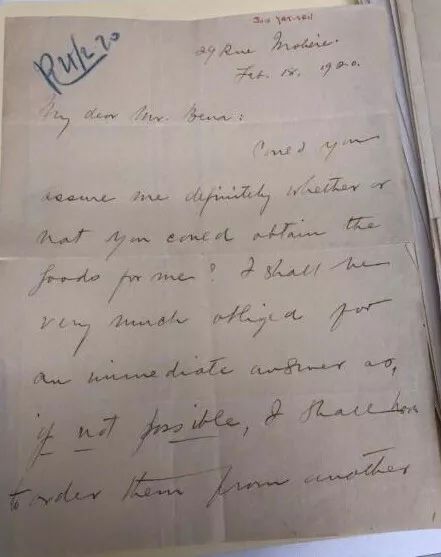 SUN YAT-SEN
29 Rue Molière.
Feb. 18, 1920.
My dear Mr.
Could you
assure me definitely whether or
not you could obtain the
goods for me? I shall be
very much obliged for
an immediate answer as,
if not possible, I shall have
to order them from another